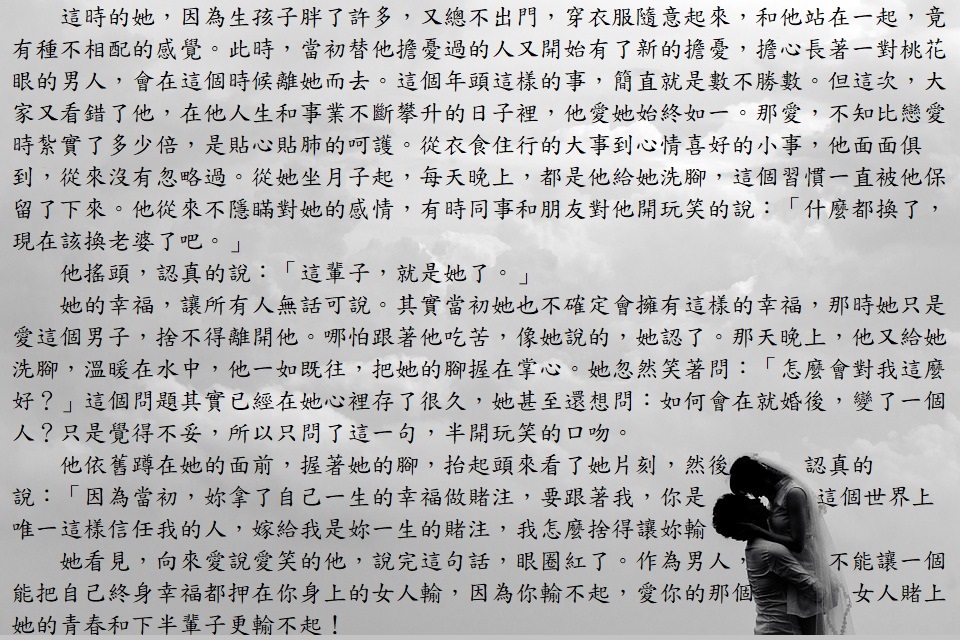 這時的她，因為生孩子胖了許多，又總不出門，穿衣服隨意起來，和他站在一起，竟
有種不相配的感覺。此時，當初替他擔憂過的人又開始有了新的擔憂，擔心長著一對桃花
眼的男人，會在這個時候離她而去。這個年頭這樣的事，簡直就是數不勝數。但這次，大
家又看錯了他，在他人生和事業不斷攀升的日子裡，他愛她始終如一。那愛，不知比戀愛
時紮實了多少倍，是貼心貼肺的呵護。從衣食住行的大事到心情喜好的小事，他面面俱
到，從來沒有忽略過。從她坐月子起，每天晚上，都是他給她洗腳，這個習慣一直被他保
留了下來。他從來不隱瞞對她的感情，有時同事和朋友對他開玩笑的說：「什麼都換了，
現在該換老婆了吧。」
他搖頭，認真的說：「這輩子，就是她了。」
她的幸福，讓所有人無話可說。其實當初她也不確定會擁有這樣的幸福，那時她只是
愛這個男子，捨不得離開他。哪怕跟著他吃苦，像她說的，她認了。那天晚上，他又給她
洗腳，溫暖在水中，他一如既往，把她的腳握在掌心。她忽然笑著問：「怎麼會對我這麼
好？」這個問題其實已經在她心裡存了很久，她甚至還想問：如何會在就婚後，變了一個
人？只是覺得不妥，所以只問了這一句，半開玩笑的口吻。
他依舊蹲在她的面前，握著她的腳，抬起頭來看了她片刻，然後 認真的
說：「因為當初，妳拿了自己一生的幸福做賭注，要跟著我，你是 這個世界上
唯一這樣信任我的人，嫁給我是妳一生的賭注，我怎麼捨得讓妳輸
她看見，向來愛說愛笑的他，說完這句話，眼圈紅了。作為男人， 不能讓一個
能把自己終身幸福都押在你身上的女人輸，因為你輸不起，愛你的那個 女人賭上
她的青春和下半輩子更輸不起！